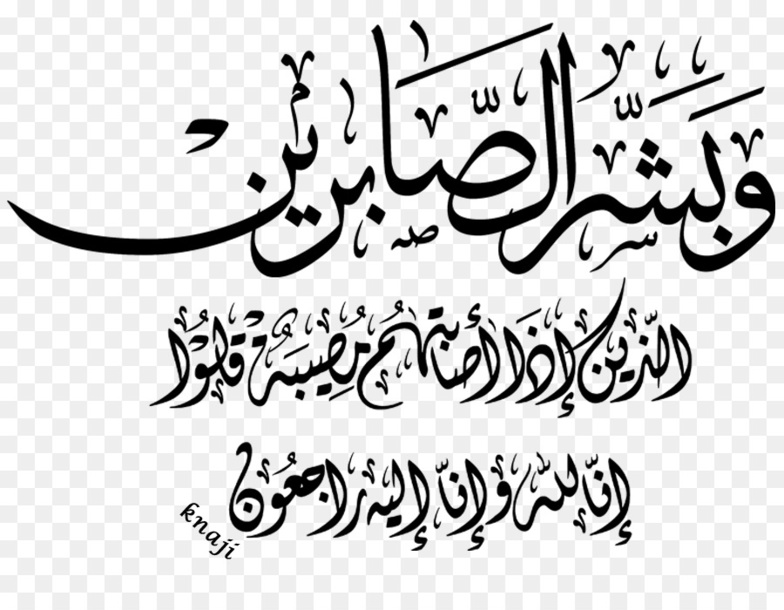 وَبَشِّرِ الصَّابِرِين
الّذين إِذَا أَصَابَتهُم مُصِيبَةٌ قَالُوا
إنّا لله وإنّا إليه راجعون
knaji